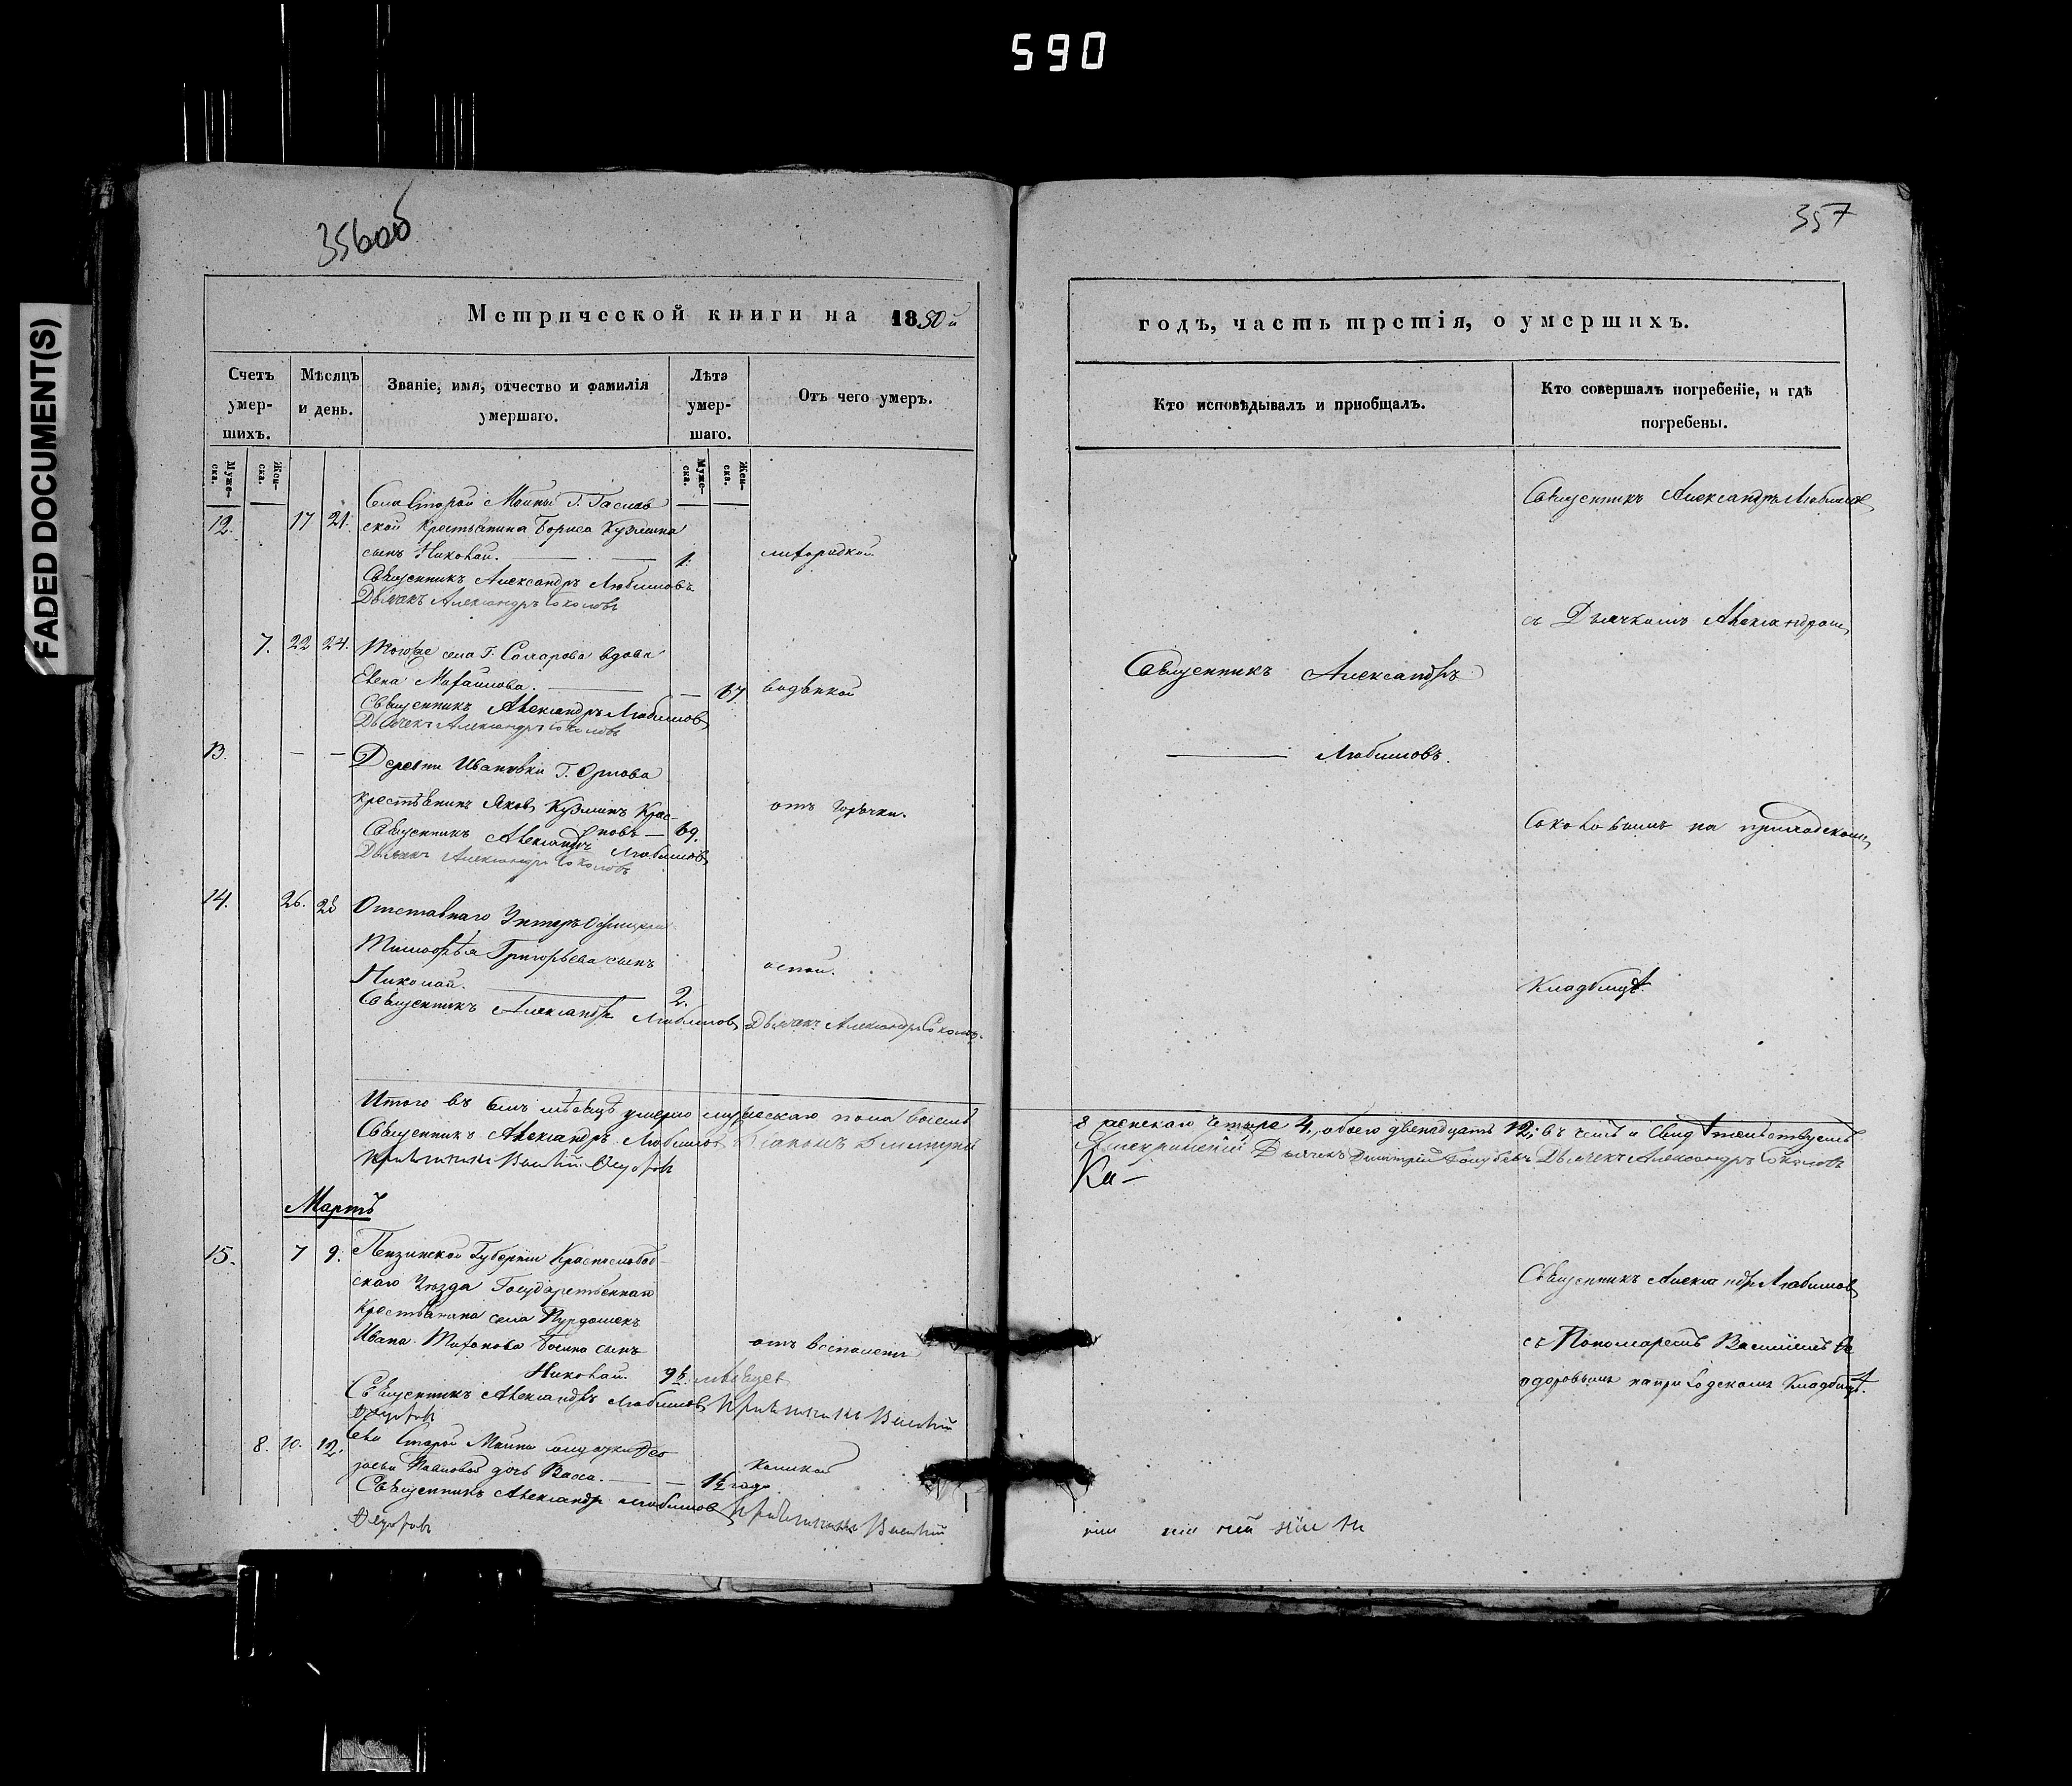 590
FADED DOCUMENT(S)
356 об
Метрической книги на 1850й
Счетъ умер-шихъ.
Мѣсяцъ и день.
Званіе, имя, отчество и фамилія умершаго.
Лѣта умер-шаго.
Отъ чего умеръ.
Муже-ска.
Жен-ска.
Муже-ска.
Жен-ска.
12. 17 21. Села Старой Майны Г.
ской крестьянина Бориса Кузмина
сынъ Николай. 1. лихорадкой
Священникъ Александръ Любимовъ
Дьячекъ Александръ Соколовъ
7. 22 24. Тогоже села Г. вдова
Елена Михайлова. 67. водянкой
Священникъ Александръ Любимовъ
Дьячекъ Александръ Соколовъ
13. — — Деревни Ивановки Г. Орлова
крестьянинъ Яковъ Кузминъ Крас- отъ горячки.
новъ — 69.
Священникъ Александръ Любимовъ
Дьячекъ Александръ Соколовъ
14. 26. 28 Отставнаго Унтеръ Офицера
Тимофѣя Григорьева сынъ оспой.
Николай. 2.
Священникъ Александръ Любимовъ Дьячекъ Александръ Соколовъ.
Итого въ семъ мѣсяцѣ умерло мужескаго пола восемь
Священникъ Александръ Любимовъ Діаконъ Димитрій
Василій Федоровъ
Мартъ
15. 7 9. Пензинской Губерніи Краснослобод-
скаго Уѣзда Государственнаго
крестьянина села Пурдошекъ
Ивана Тихонова сынъ отъ воспаленія
Николай. 9½ мѣсяцев
Священникъ Александръ Любимовъ Василій
Федоровъ
8. 10. 12. Села Старой Майны
Павловой дочь Васса. 1½ года Коликой
Священникъ Александръ Любимовъ Василій
Федоровъ
357
годъ, часть третія, о умершихъ.
Кто исповѣдывалъ и приобщалъ.
Кто совершалъ погребеніе, и гдѣ погребены.
Священникъ Александръ Любимовъ
съ Дьячкомъ Александромъ
Священникъ Александръ
Любимовъ.
Соколовымъ на приходскомъ
Кладбищѣ.
8 женскаго четыре 4, обоего двенадцать 12; въ чемъ и свидѣтельствуемъ
Дьячекъ Димитрій Дьячекъ Александръ Соколовъ
Священникъ Александръ Любимовъ
съ Пономаремъ Василіемъ Фе
одоровымъ на приходскомъ Кладбищѣ.